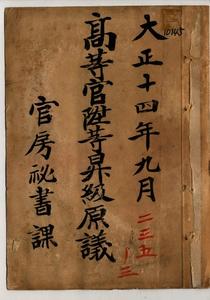 大正十四年九月
高等官陞等昇級原議
官房祕書課
二三五
ー三
10145